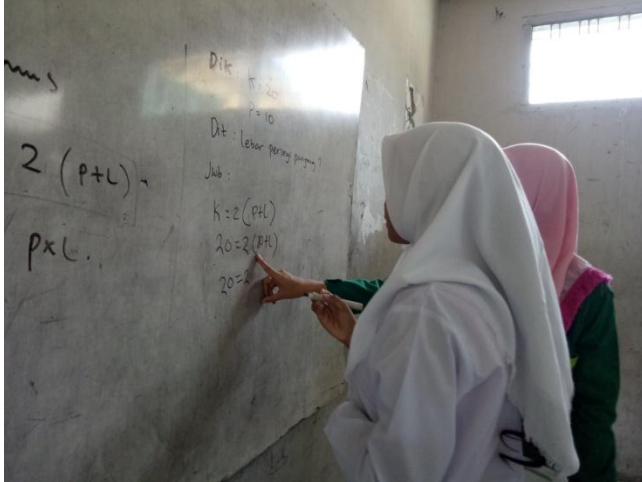 2 (p+L)
pxL.
Dik : K = 20
p = 10
Dit : Lebar persegi panjang ?
Jwb :
K = 2 (p+L)
20 = 2 (p+L)
20 = 2